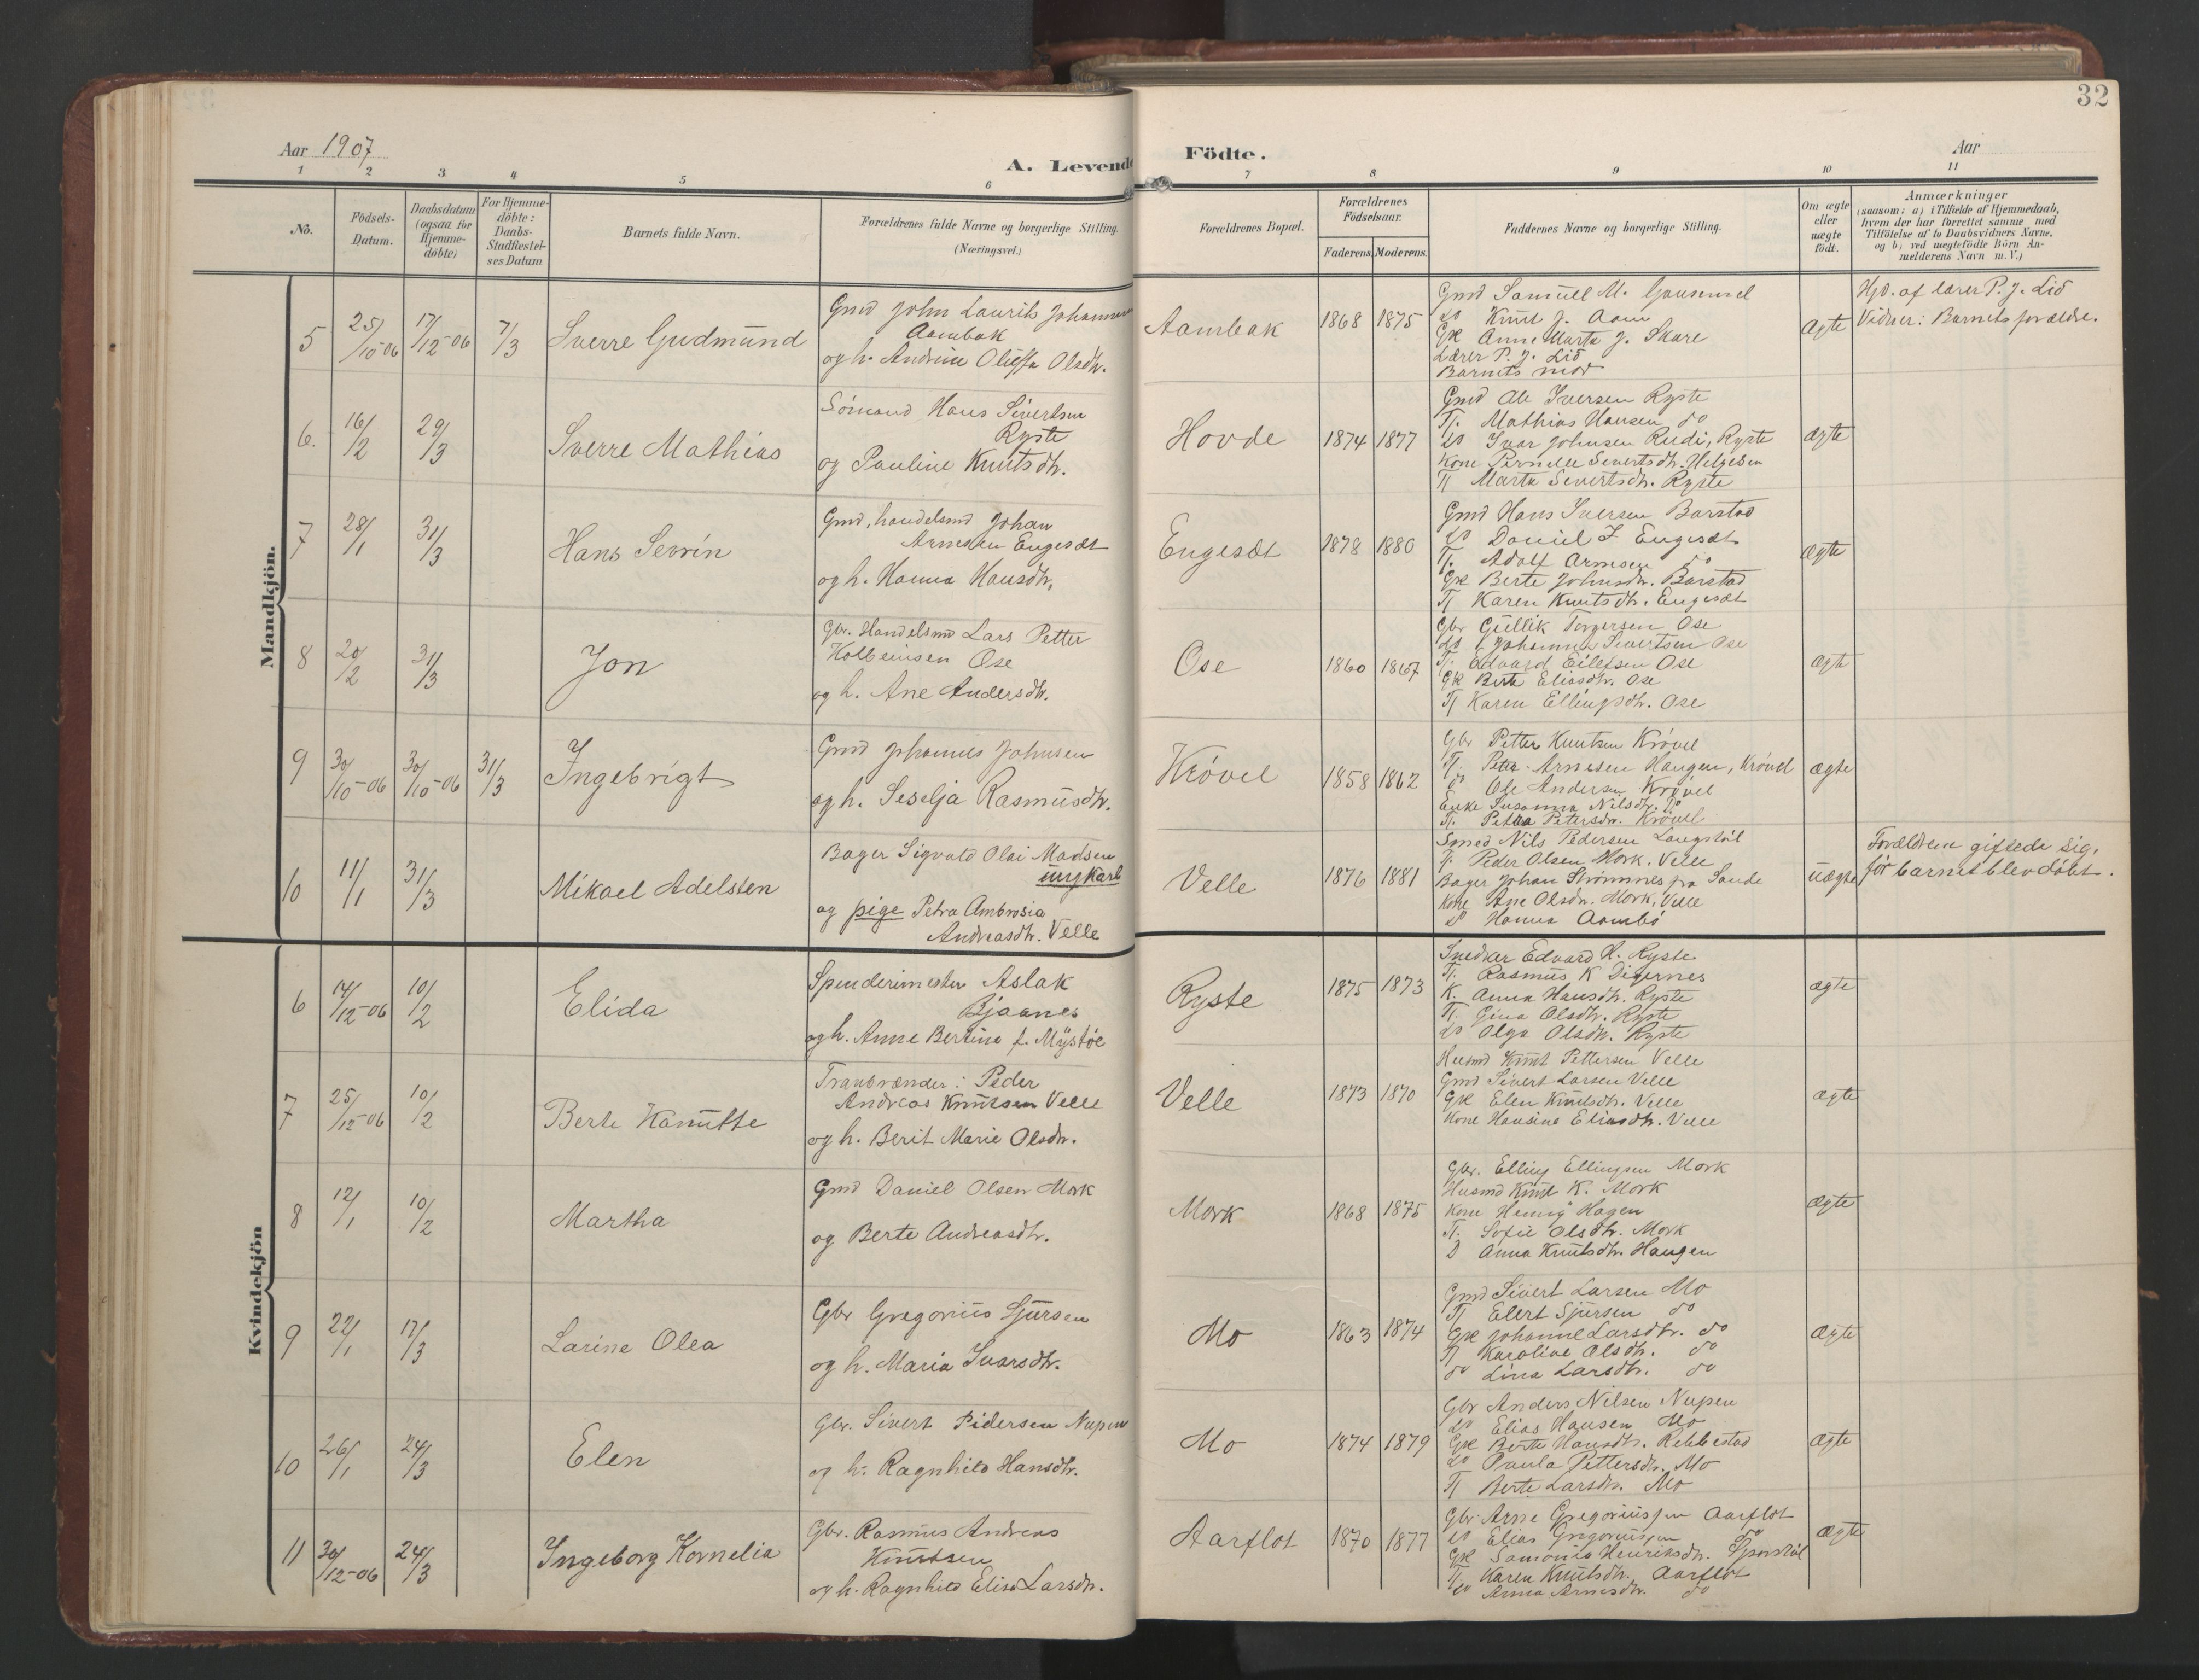 32
Aar 1907
A. Levende
Födte.
Aar
1 2 3 4 5 6 7 8 9 10 11
No.
Födsels-
Datum.
Daabsdatum
(ogsaa for
Hjemme-
döbte)
For Hjemme-
döbte:
Daabs-
Stadfæstel-
ses Datum
Barnets fulde Navn.
Forældrenes fulde Navne og borgerlige Stilling.
(Næringsvei.)
Forældrenes Bopæl.
Forældrenes
Födselsaar.
Faderens. Moderens.
Faddernes Navne og borgerlige Stilling.
Om ægte
eller
uægte
födt.
Anmærkninger
(saasom: a) i Tilfælde af Hjemmedaab,
hvem der har forrettet samme med
Tilföielse af to Daabsvidners Navne,
og b) ved uegtefödte Börn An-
melderens Navn m. V.)
Mandkjön.
5 25/10-06 17/12-06 7/3 Sverre Gudmund
Gmd John Laurits Johannes
Aambak
og h. Andrine Olsdtr.
Aambak 1868 1875
Gmd Samuel M.
do Knut J. Aam
Gk Anne Marta J. Skare
Lærer P. J. Lid
Barnets mor
ægte
Hjd. af lærer P. J. Lid
Vidner: Barnets forældre.
6. 16/2 29/3 Sverre Mathias
Sömand Hans Sivertsen
Ryste
og Pauline Knutsdtr.
Hovde 1874 1877
Gmd Ole Iversen Ryste
Tj. Mathias Hansen do
do Ivar Johnsen Rudi, Ryste
Kone Pernelle Sivertsdtr. Helgesen
Tj Marta Sivertsdtr. Ryste
ægte
7 28/1 31/3 Hans Sevrin
Gmd, handelsmd Johan
Arnesen Engesæt
og h. Hanna Hansdtr.
Engesæt 1878 1880
Gmd Hans Iversen Barstad
do Daniel I Engesæt
Tj. Adolf Arnesen do
Gk Berte Johnsdtr. Barstad
Tj Karen Knutsdtr. Engesæt
ægte
8 20/2 31/3 Jon
Gbr. Handelsmd Lars Petter
Kolbeinsen Ose
og h. Ane Andersdtr.
Ose 1860 1867
Gbr Gullik Torgersen Ose
do Johannes Sivertsen Ose
Tj. Edvard Eilefsen Ose
Gk Berte Eliasdtr. Ose
Tj Karen Ellingsdtr. Ose
ægte
9 30/10-06 30/10-06 31/3 Ingebrigt
Gmd Johannes Johnsen
og h. Seselja Rasmusdtr.
Krövel 1858 1862
Gbr Petter Knutsen Krövel
Tj. Peter Arnesen Haugen, Krövel
do Ole Andersen Krövel
Enke Susanna Nilsdtr. do
Tj. Petra Petersdr. Krövel
ægte
10 11/1 31/3 Mikael Adelsten
Bager Sigvald Olai Madsen
ungkarl
og pige Petra Ambrosia
Andreasdtr. Velle
Velle 1876 1881
Smed Nils Pedersen Langstöl
Tj. Peder Olsen Mork, Velle
Bager Johan Strømmes fra Sande
Kone Ane Olsdr. Mork, Velle
do Hanna Aambö
uægte
Forældren giftede sig,
för barnet blev döbt.
Kvindekjön
6 14/12-06 10/2 Elida
Spinderimester Aslak
Bjaanes
og h. Anne Bertine f. Mystöe
Ryste 1875 1873
Snedker Edvard H. Ryste
Tj. Rasmus K Digernes
K. Anna Hansdtr. Ryste
Tj. Gina Olsdtr. Ryste
do Olga Olsdtr. Ryste
ægte
7 25/12-06 10/2 Berte Kanutte
Tranbrænder: Peder
Andreas Knutsen Velle
og h. Berit Marie Olsdtr.
Velle 1873 1870
Husmd Knut Pettersen Velle
Gmd Sivert Larsen Velle
Gk Elen Knutsdtr. Velle
Kone Hansine Eliasdtr. Velle
ægte
8 12/1 10/2 Martha
Gmd Daniel Olsen Mork
og Berte Andreasdtr.
Mork 1868 1875
Gbr. Elling Ellingsen Mork
Husmd Knut K. Mork
Kone Henny Hagen
Tj. Sofie Olsdtr. Mork
D Anna Knutsdtr. Haugen
ægte
9 22/1 17/3 Larine Olea
Gbr Gregorius Sjursen
og h. Maria Ivarsdtr.
Mo 1863 1874
Gmd Sivert Larsen Mo
Tj Elert Sjursen do
Gk Johanne Larsdtr. do
Tj Karoline Olsdtr. do
do Lina Larsdtr. do
ægte
10 26/1 24/3 Elen
Gbr. Sivert Pedersen Nupen
og h. Ragnhild Hansdtr.
Mo 1874 1879
Gbr Anders Nilsen Nupen
do Elias Hansen Mo
Gk Berte Hansdtr. Rebbestad
do Paula Pettersdtr. Mo
Tj Berte Larsdtr. Mo
ægte
11 30/12-06 24/3 Ingeborg Kornelia
Gbr. Rasmus Andreas
Knutsen
og h. Ragnhild Elise Larsdr.
Aarflot 1870 1877
Gbr. Arne Gregoriussen Aarflot
do Elias Gregoriussen do
Gk Henriksdtr.
Tj. Karen Knutsdtr. Aarflot
do Anna Arnesdtr. do
ægte